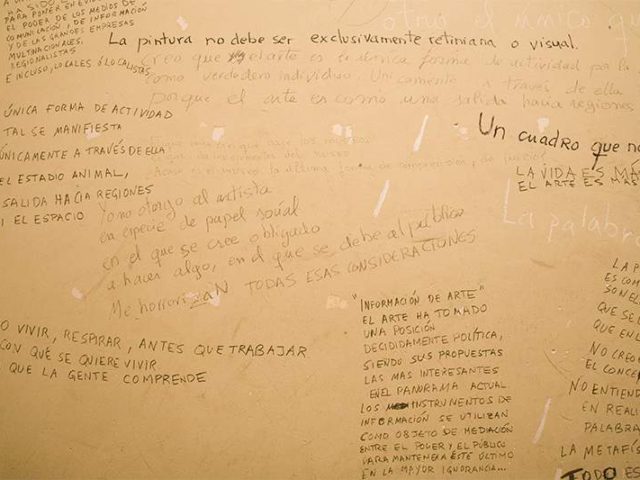 HA SIDO
PARA PONER EN EVIDENCIA
EL PODER DE LOS MEDIOS DE
COMUNICACIÓN, DE INFORMACIÓN
Y DE LAS GRANDES EMPRESAS
MULTINACIONALES,
REGIONALISTAS
E INCLUSO, LOCALES Ó LOCALISTAS
otro el único que
La pintura no debe ser exclusivamente retiniana o visual.
Creo que el arte es la única forma de actividad por la
como verdadero individuo. Unicamente a través de ella
porque el arte es como una salida hacia regiones
ÚNICA FORMA DE ACTIVIDAD
TAL SE MANIFIESTA
ÚNICAMENTE A TRAVÉS DE ELLA
EL ESTADIO ANIMAL,
SALIDA HACIA REGIONES
I EL ESPACIO
Un cuadro que no
LA VIDA ES MÁS
EL ARTE ES MAS
La palabra
Yo no otorgo al artista
en especie de papel social
en el que se cree obligado
a hacer algo, en el que se debe al público
Me horrorizan TODAS ESAS CONSIDERACIONES
O VIVIR, RESPIRAR, ANTES QUE TRABAJAR
CON QUÉ SE QUIERE VIVIR
QUE LA GENTE COMPRENDE
"INFORMACIÓN DE ARTE"
EL ARTE HA TOMADO
UNA POSICIÓN
DECIDIDAMENTE POLÍTICA,
SIENDO SUS PROPUESTAS
LAS MAS INTERESANTES
EN EL PANORAMA ACTUAL.
LOS INSTRUMENTOS DE
INFORMACIÓN SE UTILIZAN
COMO OBJETO DE MEDIACIÓN
ENTRE EL PODER Y EL PÚBLICO
PARA MANTENER A ESTE ÚLTIMO
EN LA MAYOR IGNORANCIA...
LA P
ES COM
SON EL
QUE SE
QUE EN L
NO CREO
EL CONCE
NO ENTIEND
EN REALI
PALABRA
LA METAFÍS
TODO ES